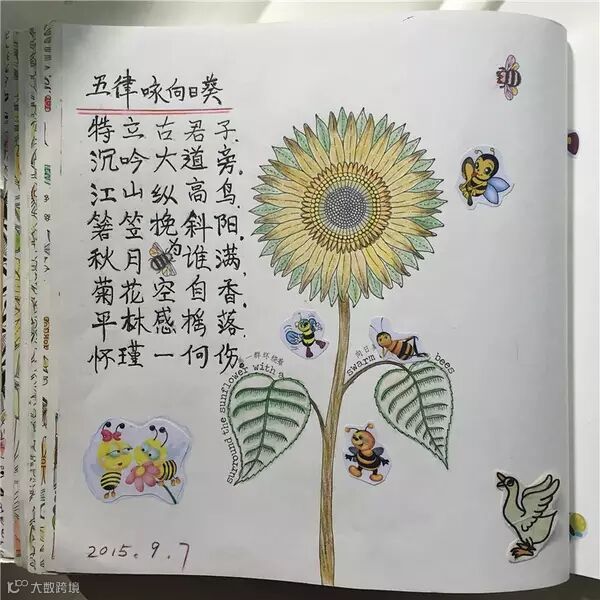 五律 咏向日葵
特立古君子,
沉吟大道旁。
江山纵高鸟,
箬笠挽斜阳。
秋月为谁满,
菊花空自香。
平林感摇落,
怀瑾一何伤。
一群环绕着
向日
surround the sunflower with a swarm bees
2015.9.7
大数跨境